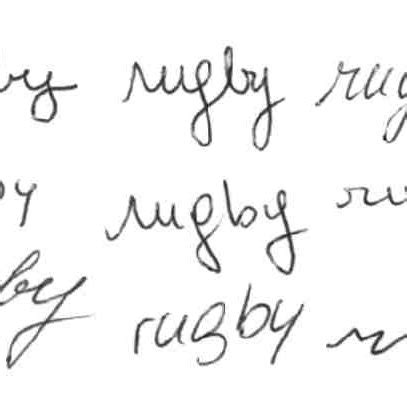 by rugby rug
by rugby ru
by rugby r